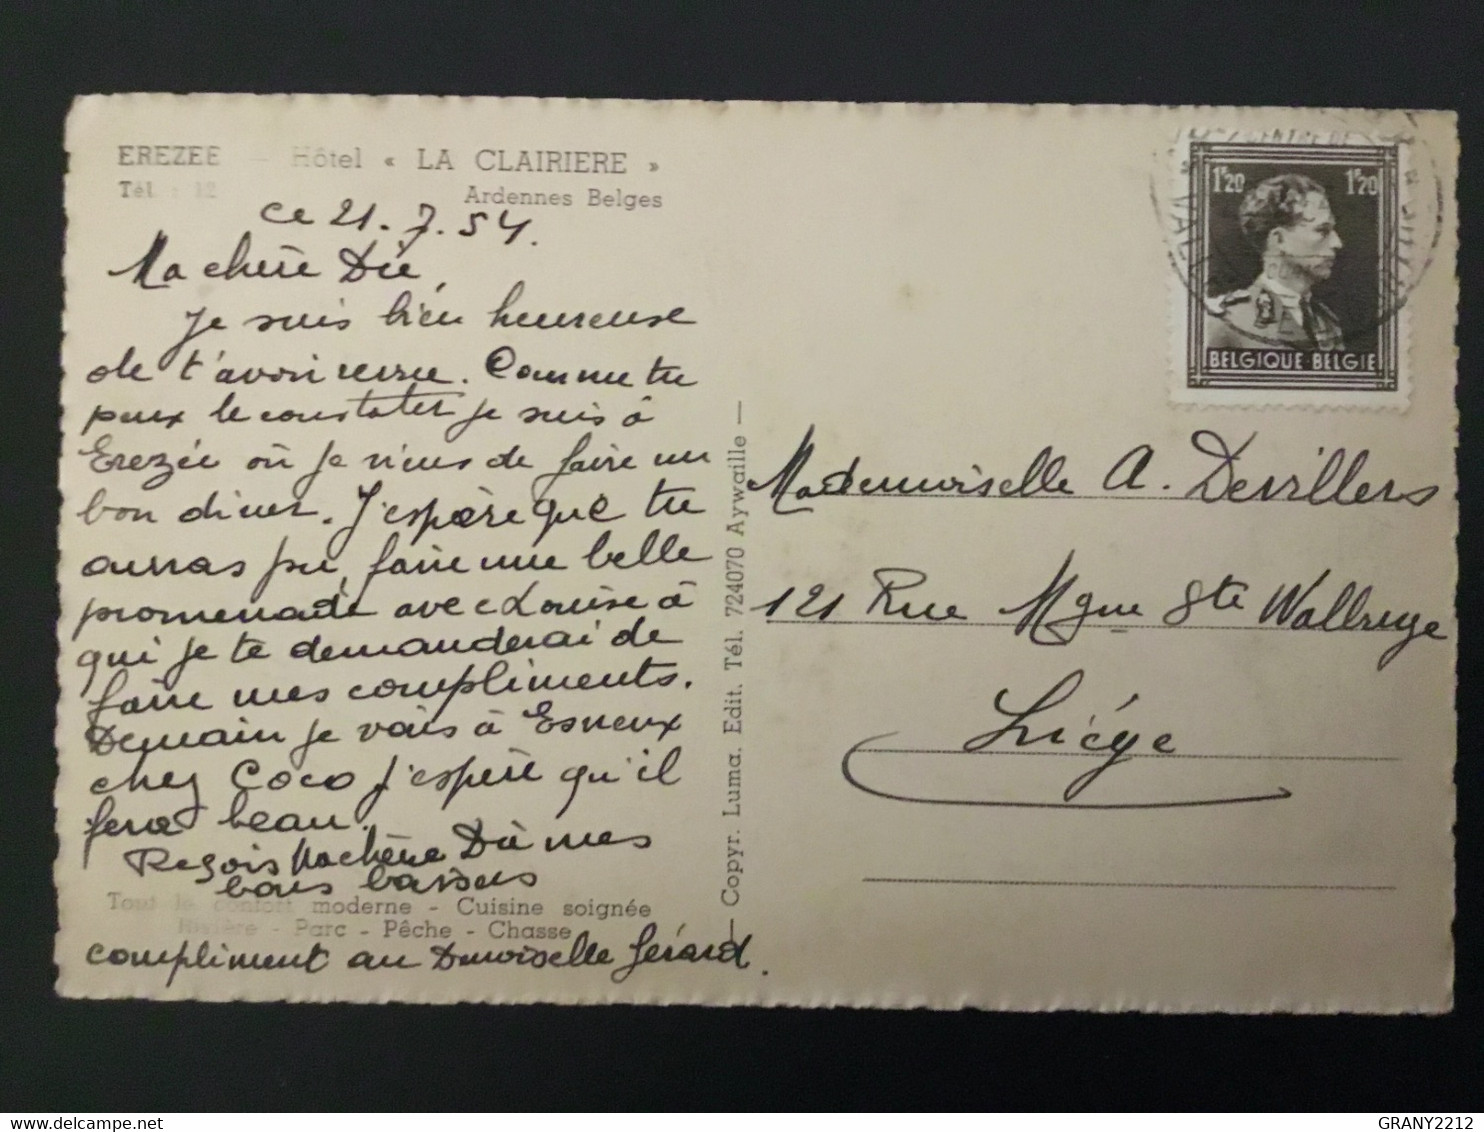 EREZEE — Hôtel « LA CLAIRIERE »
Tél. : 12 Ardennes Belges
Ce 21.7.54.
Ma chère Dée
Je suis bien heureuse
de t'avoir revue. Comme tu
peux le constater je suis à
Erezée où je viens de faire un
bon diner. J'espère que tu
auras pu faire une belle
promenade avec Louise à
qui je te demanderai de
faire mes compliments.
Demain je vais à Esneux
chez Coco j'espère qu'il
fera beau.
Reçois ma chère Dée mes
bons baisers
Tout le confort moderne - Cuisine soignée
Rivière - Parc - Pêche - Chasse
compliment au Dmoiselle Gérard.
— Copyr. Luma. Edit. Tél. 724070 Aywaille —
1F20 1F20
BELGIQUE·BELGIE
Mademoiselle A. Devillers
121 Rue Mgne Ste Walburge
Liége
GRANY2212